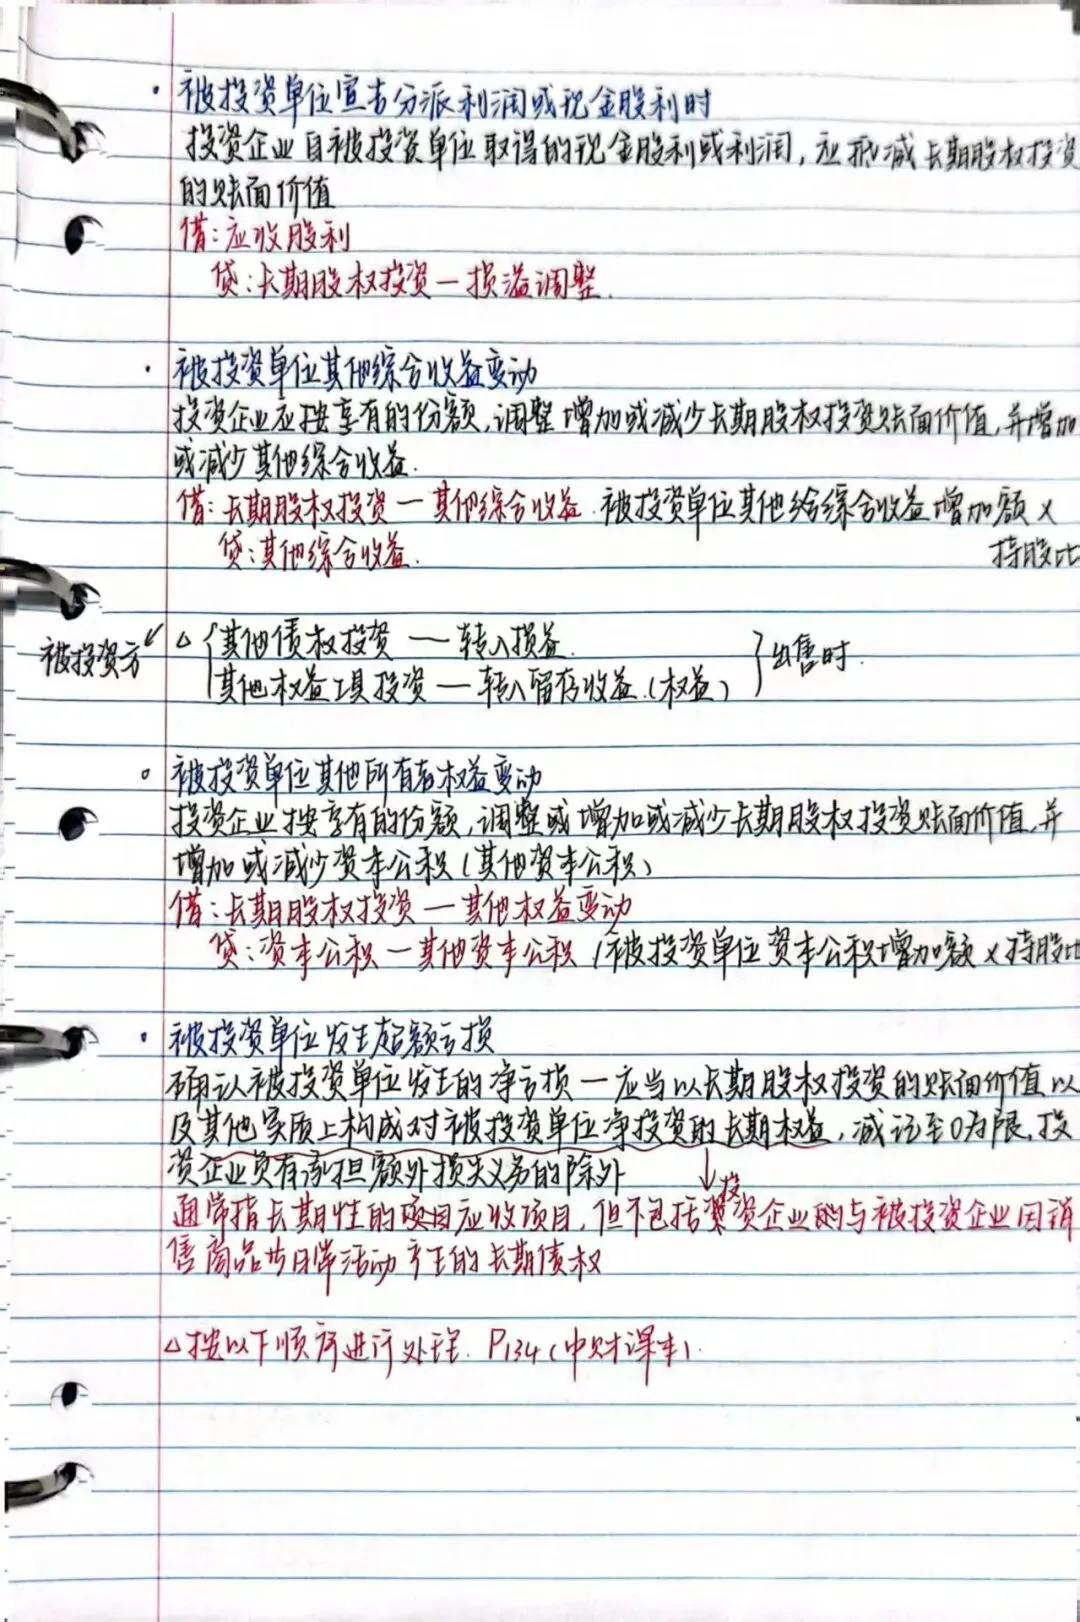 ·被投资单位宣告分派利润或现金股利时
投资企业自被投资单位取得的现金股利或利润，应抵减长期股权投资
的账面价值
借：应收股利
贷：长期股权投资—损溢调整.
·被投资单位其他综合收益变动
投资企业应按享有的份额，调整增加或减少长期股权投资账面价值，并增加
或减少其他综合收益.
借：长期股权投资—其他综合收益.被投资单位其他给综合收益增加额×
贷：其他综合收益. 持股比
被投资方 △{其他债权投资—转入损益.
其他权益工具投资—转入留存收益.(权益) }出售时.
。被投资单位其他所有者权益变动
投资企业按享有的份额，调整或增加或减少长期股权投资账面价值，并
增加或减少资本公积(其他资本公积)
借：长期股权投资—其他权益变动
贷：资本公积—其他资本公积(被投资单位资本公积增加额×持股比
·被投资单位发生超额亏损
确认被投资单位发生的净亏损—应当以长期股权投资的账面价值以
及其他实质上构成对被投资单位净投资的长期权益，减记至0为限，投
资企业负有承担额外损失义务的除外
通常指长期性的项目应收项目，但不包括投资企业的与被投资企业因销
售商品等日常活动产生的长期债权
△按以下顺序进行处理. P134(中财课本).